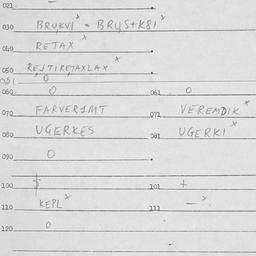 021
030 BRUKVI^x = BRUS+K8I^x
040 RETAX^x
050 REJTIRETAXLAX^x
051 0
060 0 061 0
070 FARVERIMT 071 VEREMDIK^x
080 UGERKES 081 UGERKI^x
090 0
100 $ 101 +
110 KEPL^x 111 —^x
120 0